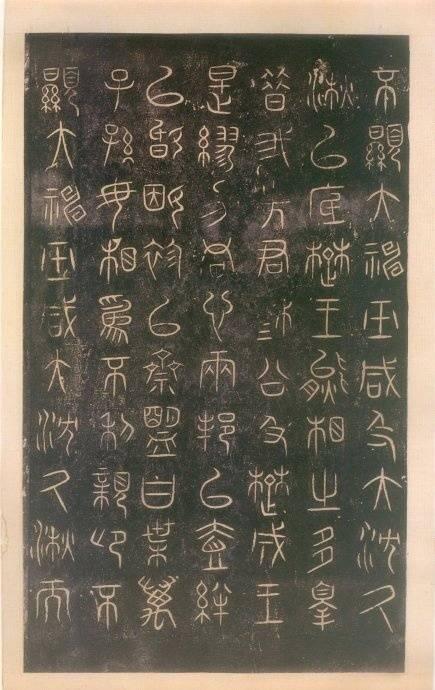 不顯大神巫咸及大沈久
湫以厎楚王熊相之多辠
昔我先君穆公及楚成王
是繆力同心兩邦以壹絆
以婚姻袗以齋盟曰枼萬
子孫毋相為不利親卬不
顯大神巫咸大沈久湫而